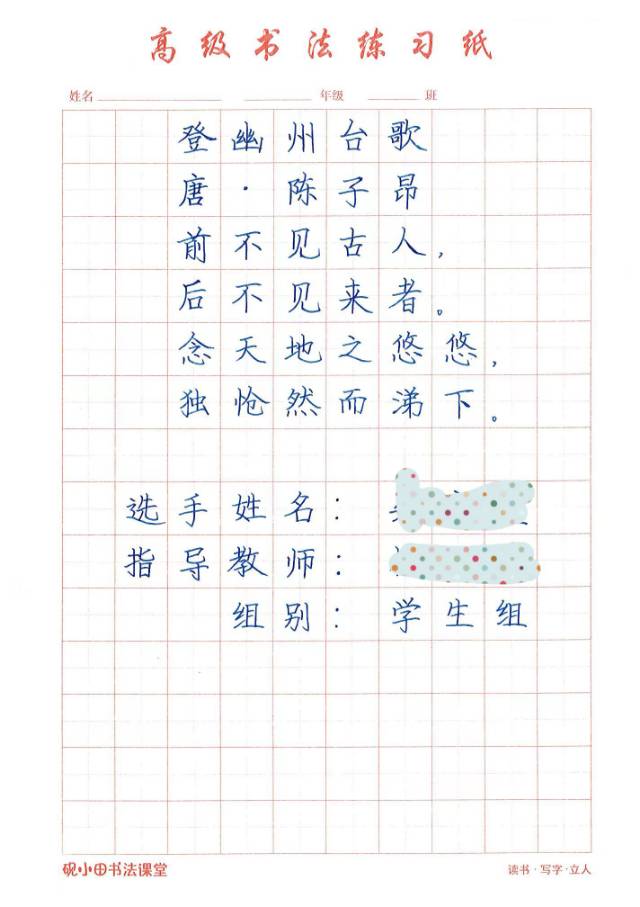 高级书法练习纸
姓名 年级 班
登幽州台歌
唐·陈子昂
前不见古人，
后不见来者。
念天地之悠悠，
独怆然而涕下。
选手姓名：
指导教师：
组别：学生组
砚小田书法课堂
读书·写字·立人